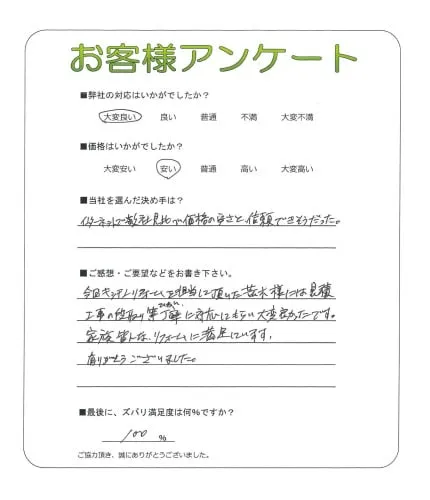 お客様アンケート
■弊社の対応はいかがでしたか？
大変良い 良い 普通 不満 大変不満
■価格はいかがでしたか？
大変安い 安い 普通 高い 大変高い
■当社を選んだ決め手は？
インターネットで数社見比べ価格の安さと、信頼できそうだった。
■ご感想・ご要望などをお書き下さい。
今回キッチンリフォームを担当して頂いた 様には見積
工事の段取り等丁寧に対応してもらい大変良かったです。
家族皆んな、リフォームに満足しています。
ありがとうございました。
■最後に、ズバリ満足度は何%ですか？
100 %
ご協力頂き、誠にありがとうございました。